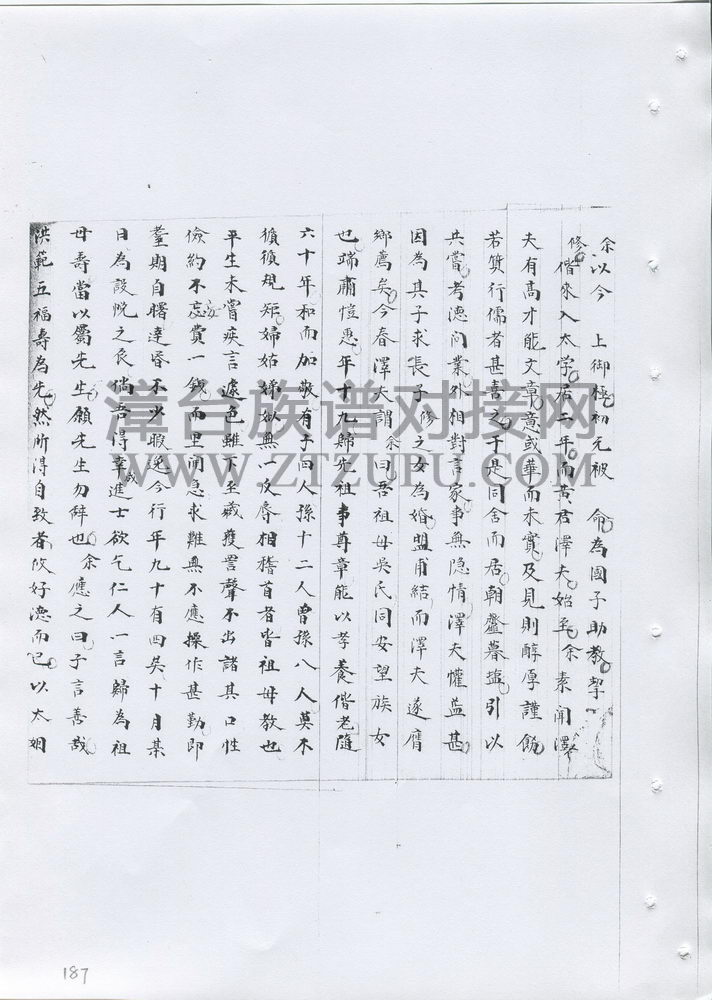 余以今 上御極初元被 命為國子助教挈
修偕來入太学居二年而黃君澤夫始至余素聞澤
夫有高才能文章意或華而未實及見則醇厚謹飭
若質行儒者甚喜之于是同舍而居朝虀暮塩引以
共嘗考德问業外相對言家事無隐情澤夫懽益甚
因為其子求長子修之女為婚盟甫結而澤夫遂膺
鄉薦矣今春澤夫謂余曰吾祖母吳氏同安望族女
也端肅愷惠年十九歸先祖事尊章能以孝養偕老隨
六十年和而加敬有子四人孫十二人曾孫八人莫不
循循規矩婦姑娣姒無一反唇相稽首者皆祖母教也
平生未嘗疾言遽色雖下至臧獲詈聲不出諸其口性
儉約不忘費一錢而里闬急求難無不應操作甚勤即
耋期自曙達昏不少暇逸今行年九十有四矣十月某
日為設帨之辰倘吾得幸成進士欲乞仁人一言歸為祖
母壽當以屬先生願先生勿辞也余應之曰子言善哉
洪範五福壽為先然所得自致者攸好德而已以太姻
漳台族谱对接网
WWW.ZTZUPU.COM
187